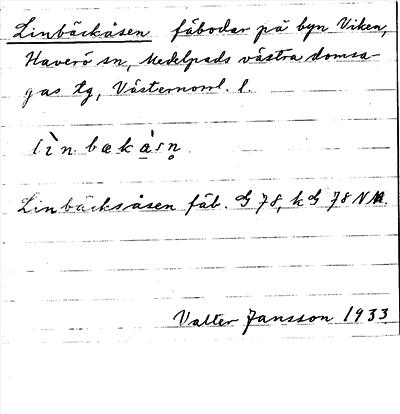 Linbäckåsen fäbodar på byn Viken,
Haverö sn, Medelpads västra domsa-
gas tg, Västernorrl. l.
lìn bækàsn̥
Linbäcksåsen fäb. G 78, kG 78 NN.
Valter Jansson 1933